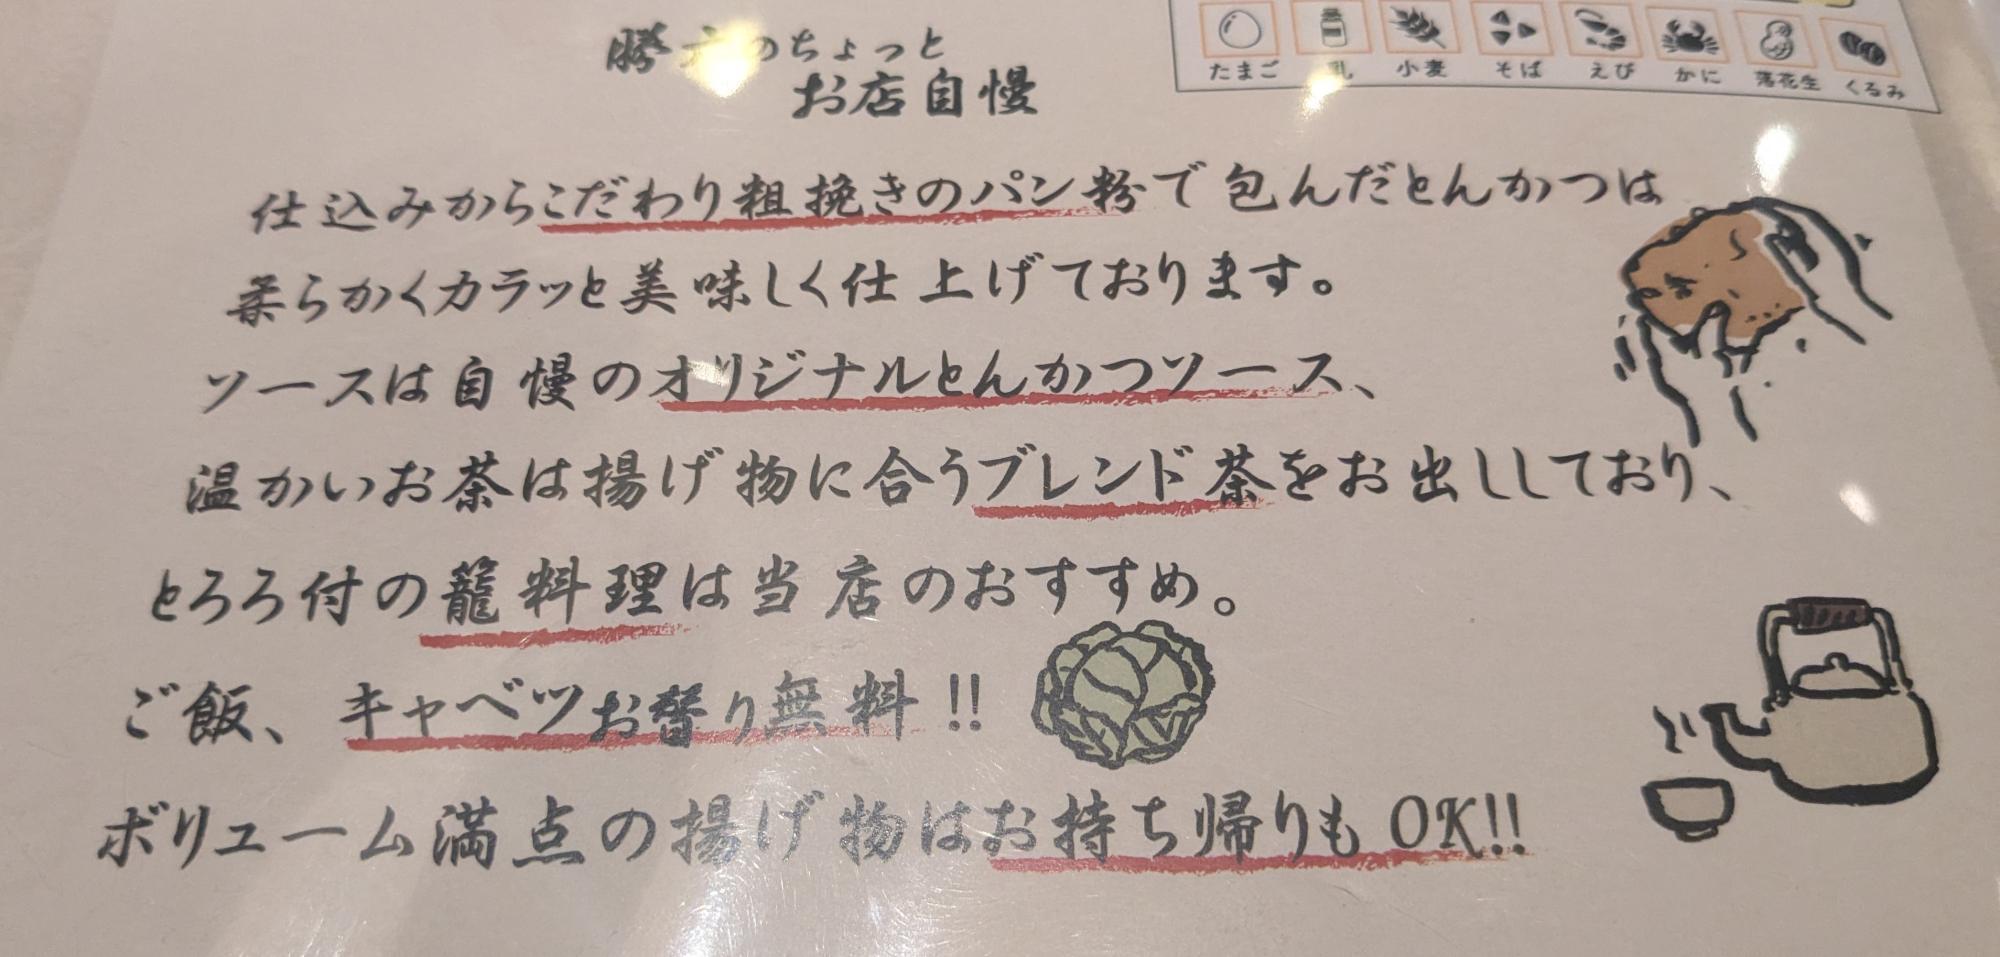 たまご 乳 小麦 そば えび かに 落花生 くるみ
のちょっと
お店自慢
仕込みからこだわり粗挽きのパン粉で包んだとんかつは
柔らかくカラッと美味しく仕上げております。
ソースは自慢のオリジナルとんかつソース、
温かいお茶は揚げ物に合うブレンド茶をお出ししており、
とろろ付の籠料理は当店のおすすめ。
ご飯、キャベツお替り無料!!
ボリューム満点の揚げ物はお持ち帰りもOK!!